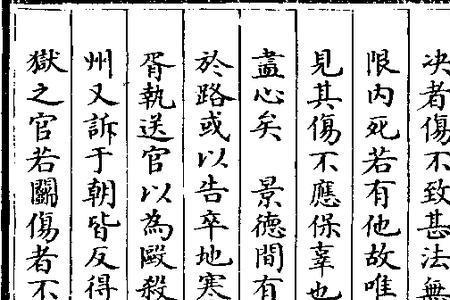 决者傷不致甚法無
限内死若有他故唯
見其傷不應保辜也
盡心矣　景德間有
於路或以告卒地寒
胥執送官以為毆殺
州又訴于朝皆反得
獄之官若鬬傷者不